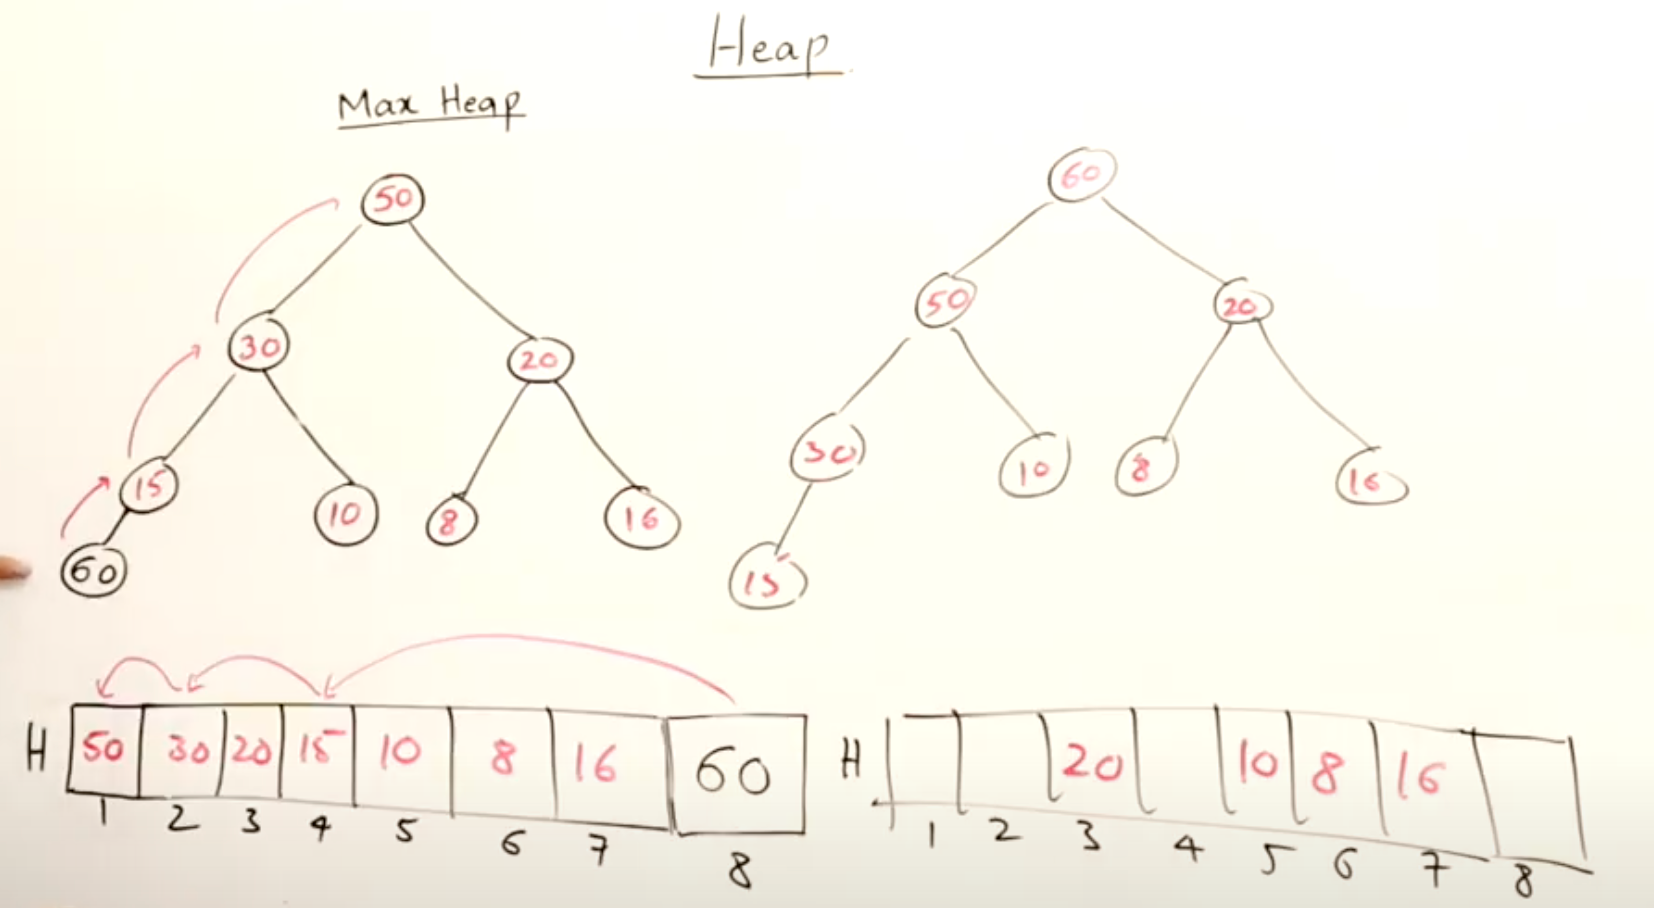 Heap
Max Heap
50
30 20
15 10 8 16
60
60
50 20
30 10 8 16
15
H 50 30 20 15 10 8 16 60
1 2 3 4 5 6 7 8
H 20 10 8 16
1 2 3 4 5 6 7 8